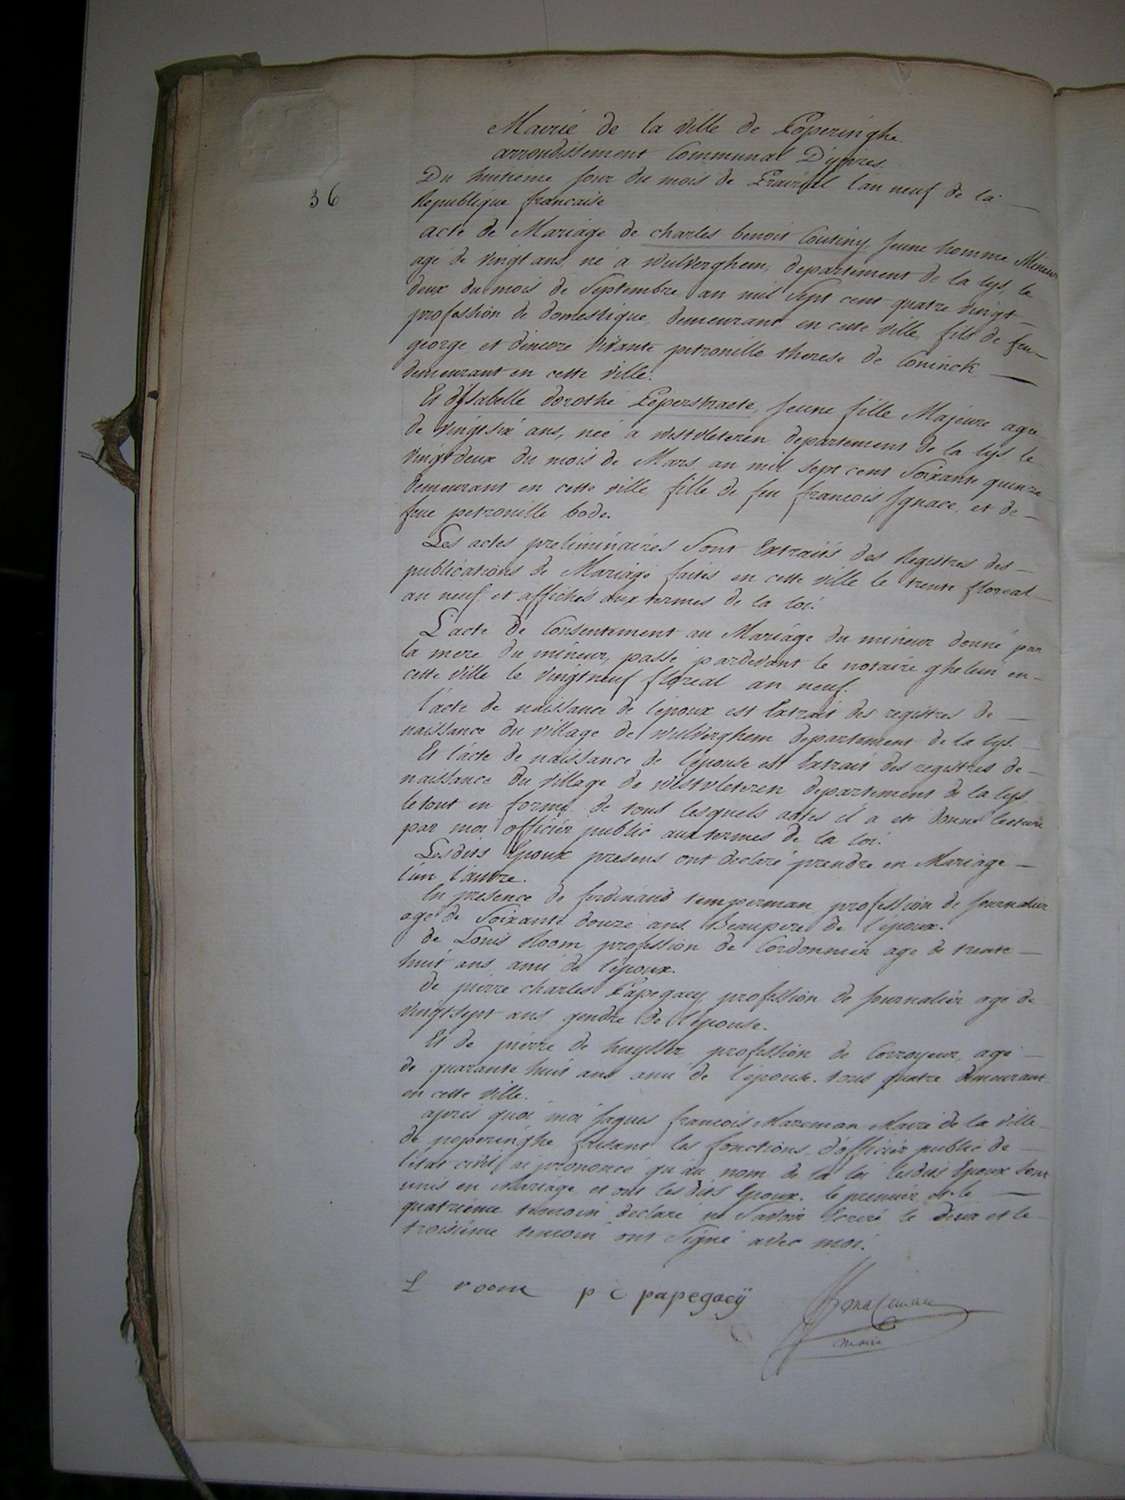 Mairie de la ville de Poperinghe
arrondissement Communal D'ypres
36
Du huitieme jour du mois de Prairial l'an neuf de la
Republique francaise
acte de Mariage de charles benoit Coutiny jeune homme Mineur
agé de vingt ans né à wulverghem, departement de la lys, le
deux du mois de Septembre an mil Sept cent quatre vingt
profession de domestique, demeurant en cette ville, fils de feu
george et d'encore vivante petronille therese de Coninck
demeurant en cette ville.
Et d'isabelle dorothe Peperstraete, jeune fille Majeure agée
de vingtsix ans, née à westvleteren departement de la lys le
vingtdeux du mois de Mars an mil sept cent Soixante quinze
demeurant en cette ville fille de feu francois Ignace, et de
feue petronille bode.
Les actes preliminaires Sont Extraits des Registres des
publications de Mariage faites en cette ville le trente floreal
an neuf et affichés aux termes de la loi.
L'acte de Consentement au Mariage du mineur donné par
la mere du mineur, passé pardevant le notaire ghelein en
cette ville le vingtneuf floreal an neuf.
l'acte de naissance de l'epoux est Extrait des registres de
naissance du village de wulverghem departement de la lys.
Et l'acte de naissance de l'épouse est Extrait des registres de
naissance du village de westvleteren departement de la lys
le tout en forme, de tous lesquels actes il a été donné lecture
par moi officier public aux termes de la loi.
Lesdits Epoux presens ont declaré prendre en Mariage
l'un l'autre.
En presence de ferdinand temperman profession de journalier
agé de Soixante douze ans Beaupere de l'époux.
de Louis Room, profession de Cordonnier agé de trente
huit ans ami de l'époux.
de pierre charles Papegaey profession de journalier agé de
vingtsept ans gendre de l'épouse.
Et de pierre de huysser profession de Corroyeur, agé
de quarante huit ans ami de l'épouse. tous quatre demeurant
en cette ville.
après quoi moi jaques francois Mazeman Maire de la ville
de poperinghe faisant les fonctions d'officier public de
l'état civil, ai prononcé qu'au nom de la loi lesdits Epoux sont
unis en Mariage, et ont lesdits Epoux. le premier et le
quatrième temoin declaré ne Savoir Ecrire le deux et le
troisième temoin ont Signé avec moi.
L room p c papegaeÿ
maire